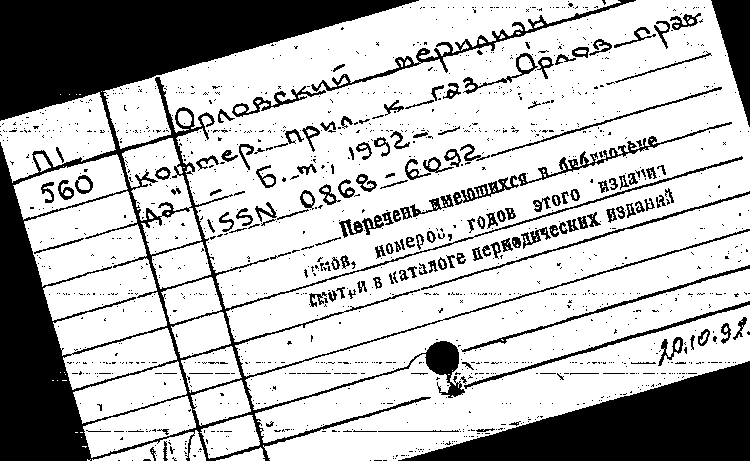 П1
560
Орловский меридиан :
коммер. прил. к газ. „Орлов. прав-
да". – Б. м., 1992 –
ISSN 0868-6092
Перечень имеющихся в библиотеке
томов, номеров, годов этого издания
смотри в каталоге периодических изданий
20.10.92.